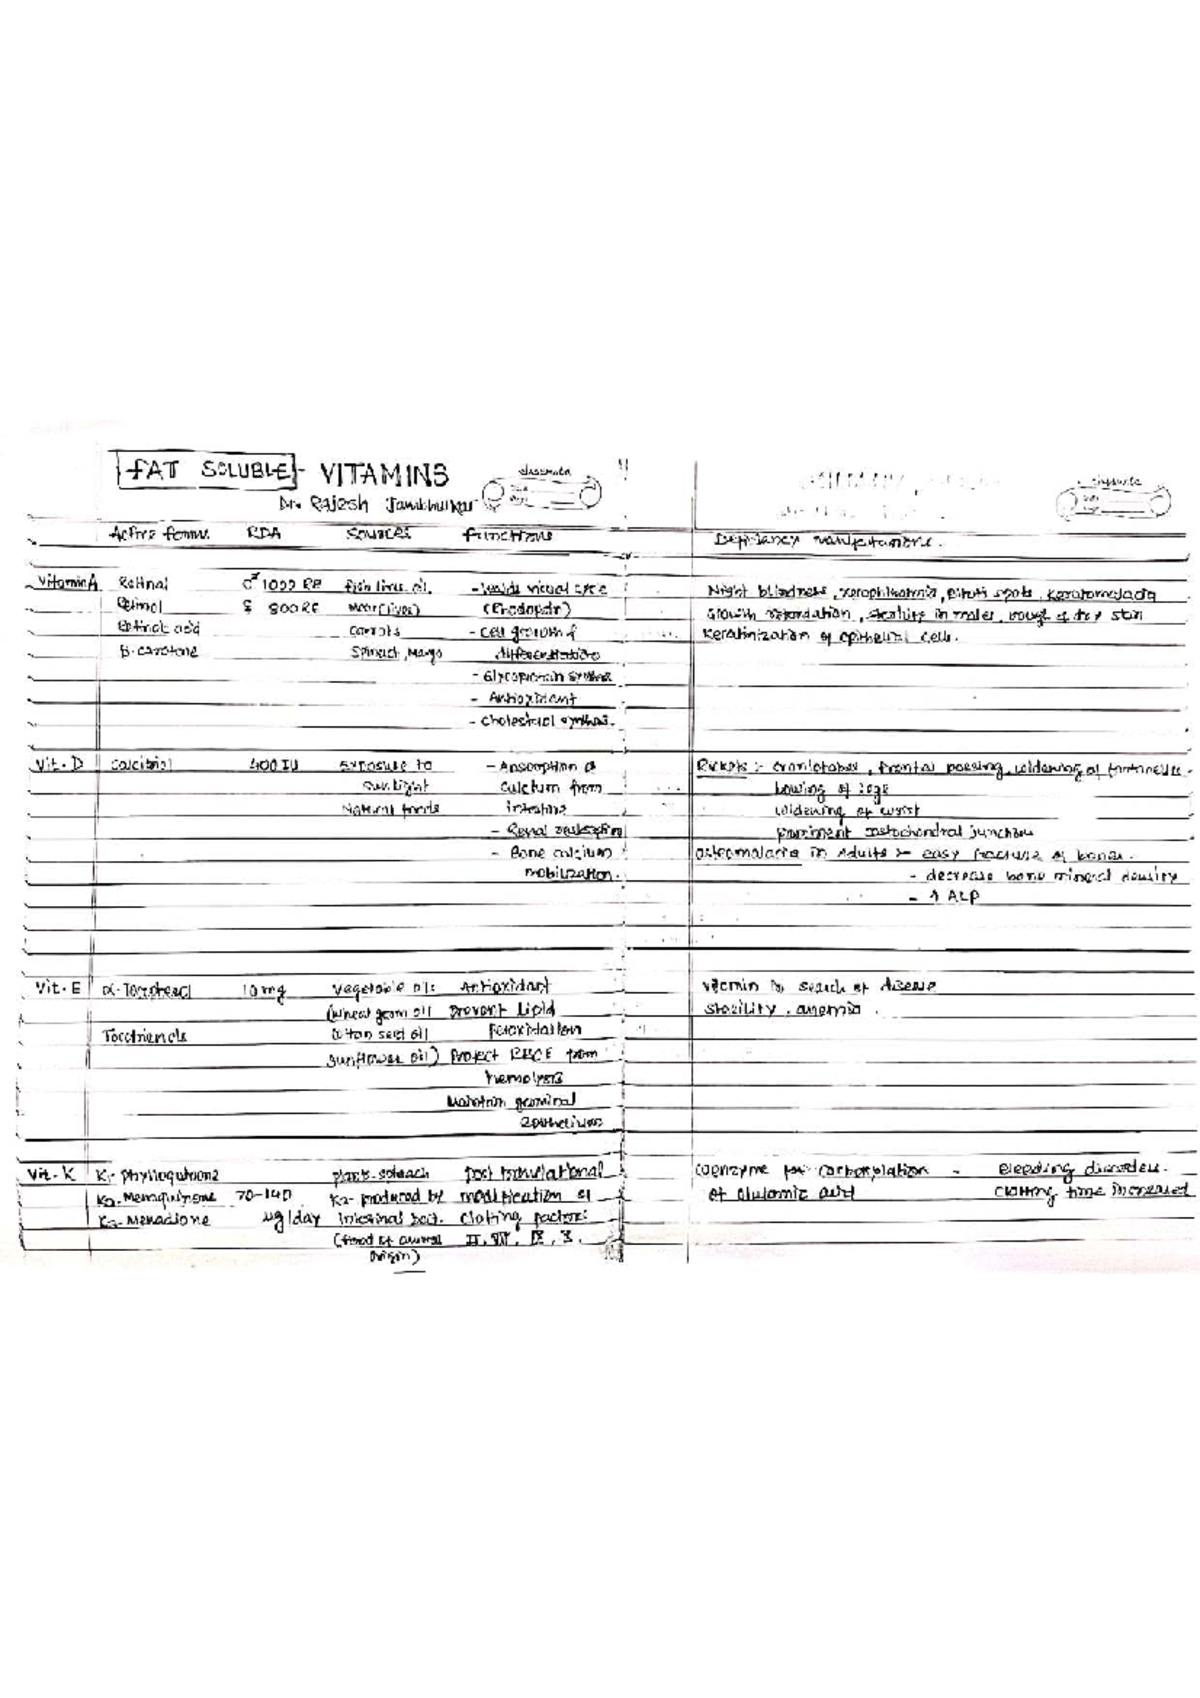 FAT SOLUBLE - VITAMINS
classmate
Dr. Rajesh Jambhulkar
Active forms RDA Sources functions
Vitamin A Retinal ♂ 1000 RE fish liver oil - visual cycle
Retinol ♀ 800 RE (liver) (Rhodopsin)
Retinoic acid carrots - cell growth &
B-carotene Spinach, Mango differentiation
- Glycoprotein
- Antioxidant
- Cholesterol synthesis.
Vit. D Calcitriol 400 IU Exposure to - Absorption of
Sunlight calcium from
Natural foods intestine
- Renal
- Bone calcium
mobilization.
Vit. E α-Tocopherol 10 mg vegetable oils Antioxidant
(wheat germ oil prevent lipid
Tocotrienols cotton seed oil peroxidation
sunflower oil) from
hemolysis
Maintain germinal
epithelium
Vit. K plants post translational
K2- 70-140 K2- produced by modification of
K3- Menadione ug/day intestinal clotting factors
(food of animal II, VII, IX, X.
origin)
classmate
Deficiency manifestations.
Night blindness, xerophthalmia, bitot spots, keratomalacia
Growth retardation, sterility in males, rough & dry skin
Keratinization of epithelial cells.
Rickets :- craniotabes, frontal bossing, widening of fontanelle.
bowing of legs
widening of wrist
prominent costochondral junction
osteomalacia in adults :- easy fracture of bones.
- decrease bone mineral density
- ↑ ALP
vitamin in search of disease
sterility, anemia.
coenzyme for carboxylation - Bleeding disorders.
of glutamic acid clotting time increased